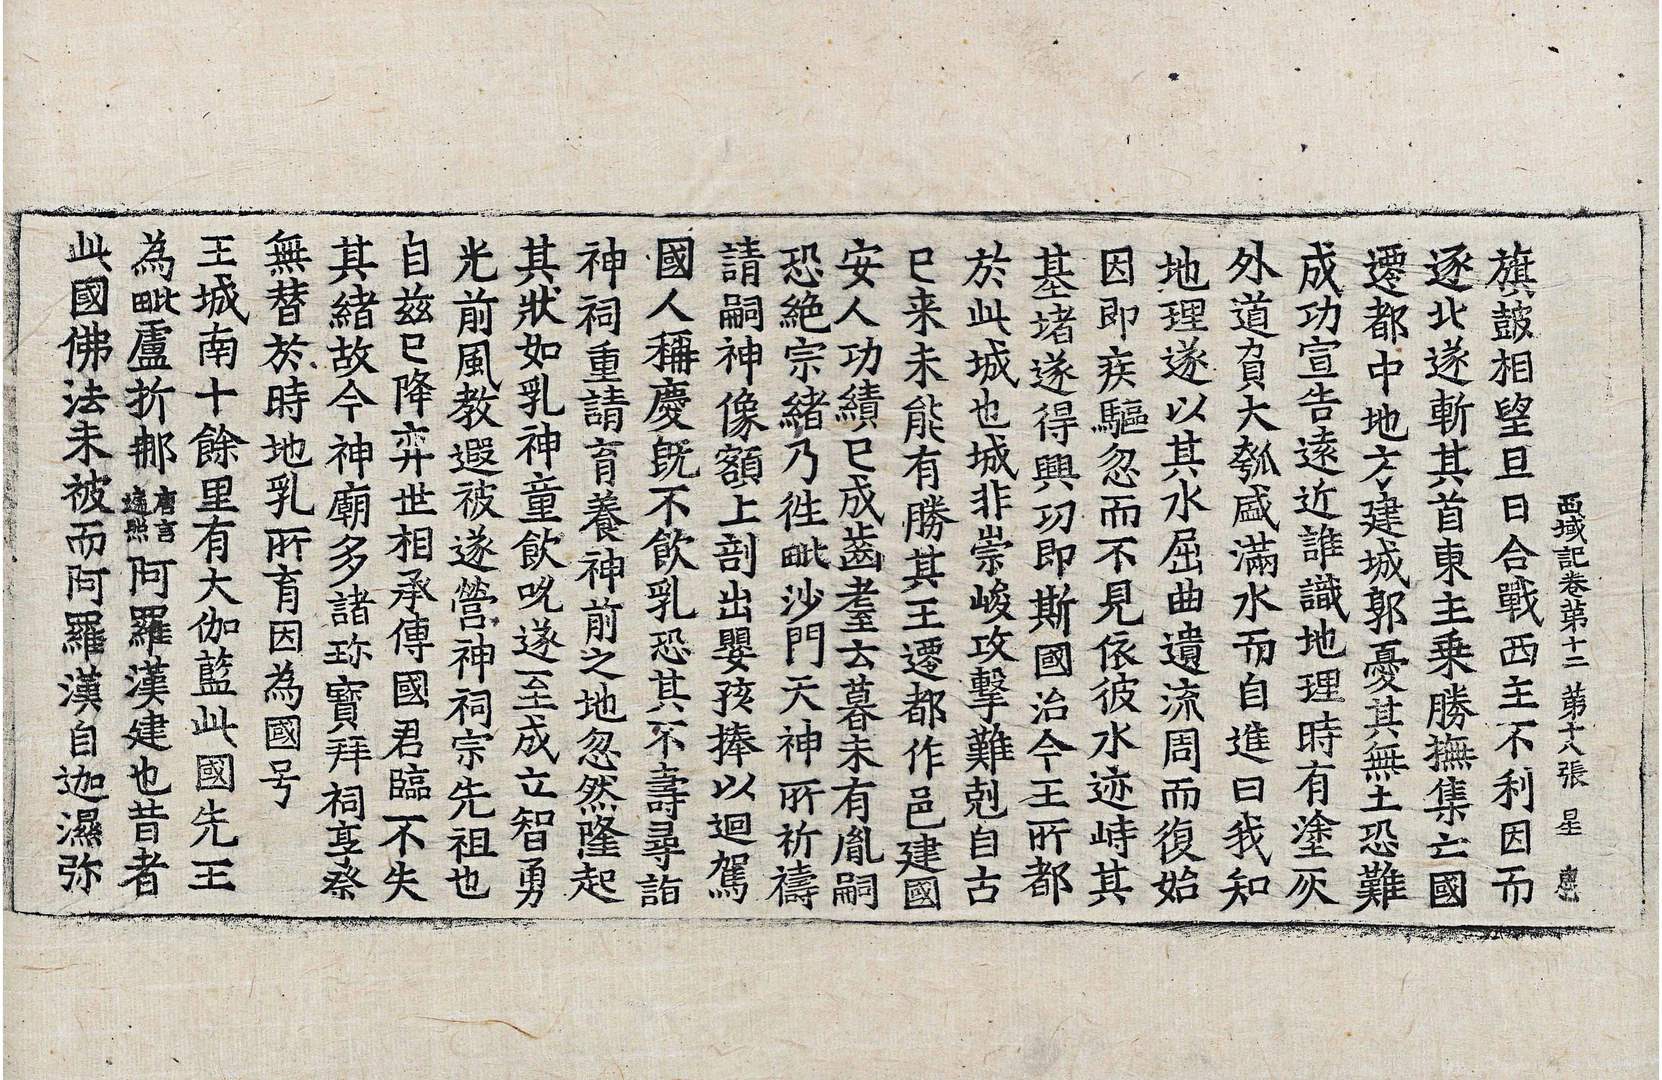 西域記卷苐十二 苐十八張 星
旗皷相望旦日合戰西主不利因而
逐北遂斬其首東主乗勝撫集亡國
遷都中地方建城郭憂其無土恐難
成功宣告遠近誰識地理時有塗灰
外道負大瓠盛滿水而自進曰我知
地理遂以其水屈曲遺流周而復始
因即疾驅忽而不見依彼水迹峙其
基堵遂得興功即斯國治今王所都
於此城也城非崇峻攻擊難剋自古
已来未能有勝其王遷都作邑建國
安人功績已成齒耋云暮未有胤嗣
恐絶宗緒乃徃毗沙門天神所祈禱
請嗣神像額上剖出嬰孩捧以迴駕
國人稱慶旣不飲乳恐其不壽尋詣
神祠重請育養神前之地忽然隆起
其狀如乳神童飲吮遂至成立智勇
光前風教遐被遂營神祠宗先祖也
自茲已降弈世相承傳國君臨不失
其緒故今神廟多諸珎寶拜祠享祭
無替於時地乳所育因為國号
王城南十餘里有大伽藍此國先王
為毗盧折那唐言遍照阿羅漢建也昔者
此國佛法未被而阿羅漢自迦濕弥